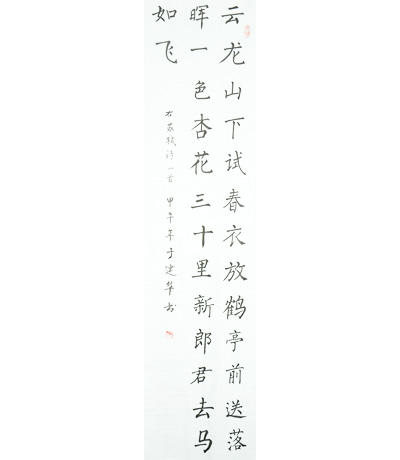 云龙山下试春衣放鹤亭前送落
晖一色杏花三十里新郎君去马
如飞
右苏轼诗一首 甲午年于建华书